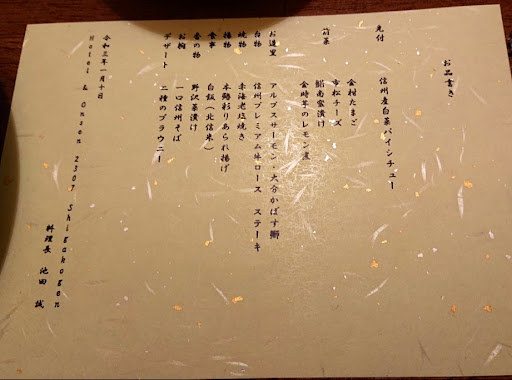 お品書き
先付 信州産白菜パイシチュー
前菜 金柑たまご
市松チーズ
鰯南蛮漬け
金時芋のレモン煮
お造里 アルプスサーモン 大分かぼす鰤
台物 信州プレミアム牛ロース ステーキ
焼物 赤海老塩焼き
揚物 本鱈彩りあられ揚げ
食事 白飯(北信米)
香の物 野沢菜漬け
お椀 一口信州そば
デザート 二種のブラウニー
令和三年一月十日
Hotel & Onsen 2307 Shigakogen
料理長 池田 誠